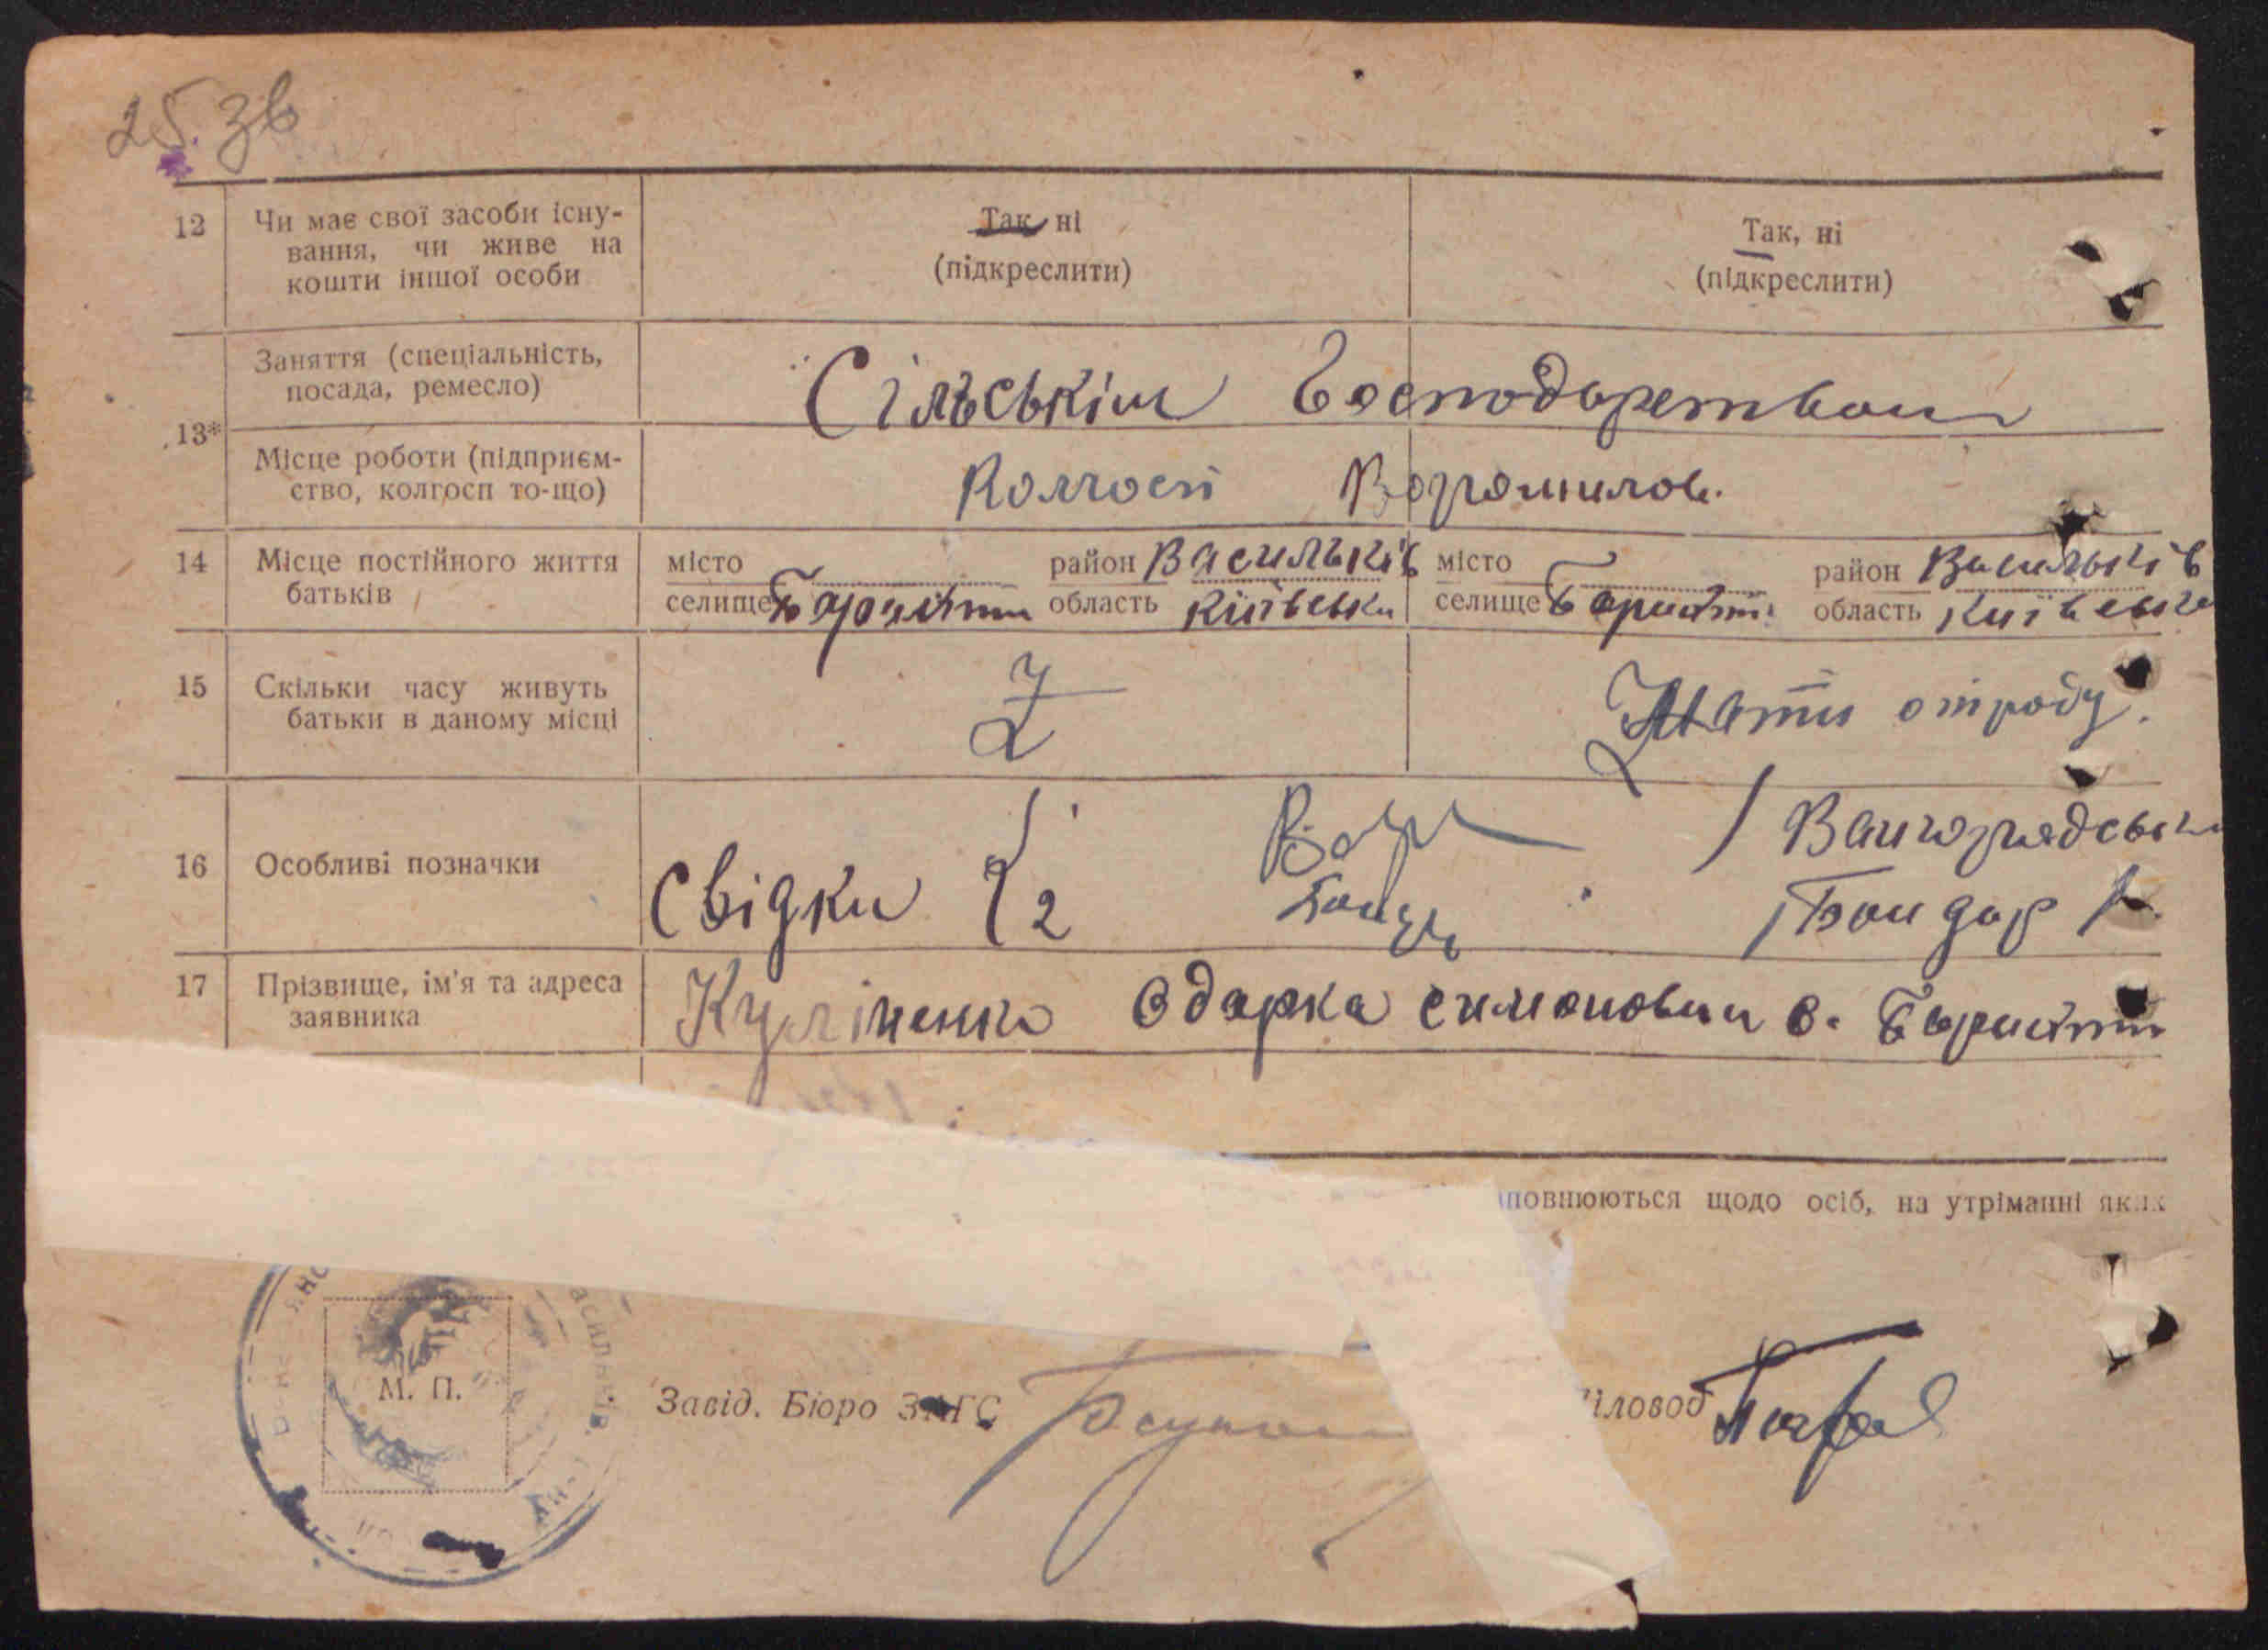 25. зв
12 Чи має свої засоби існу-
вання, чи живе на
кошти іншої особи
Так ні
(підкреслити)
Так, ні
(підкреслити)
13*
Заняття (спеціальність,
посада, ремесло)
Сільскім Господарством
Місце роботи (підприєм-
ство, колгосп то-що)
Колгосп Ворошилов.
14 Місце постійного життя
батьків
місто
селище Барахти
район Васильків
область Київська
місто
селище Барахти
район Васильків
область Київська
15 Скільки часу живуть
батьки в даному місці
Мати отроду.
16 Особливі позначки
Свідки
2
Бондар
17 Прізвище, ім'я та адреса
заявника
Одарка с.
повнюються щодо осіб, на утріманні яких
М. П.
Завід. Бюро ЗАГС
іловод